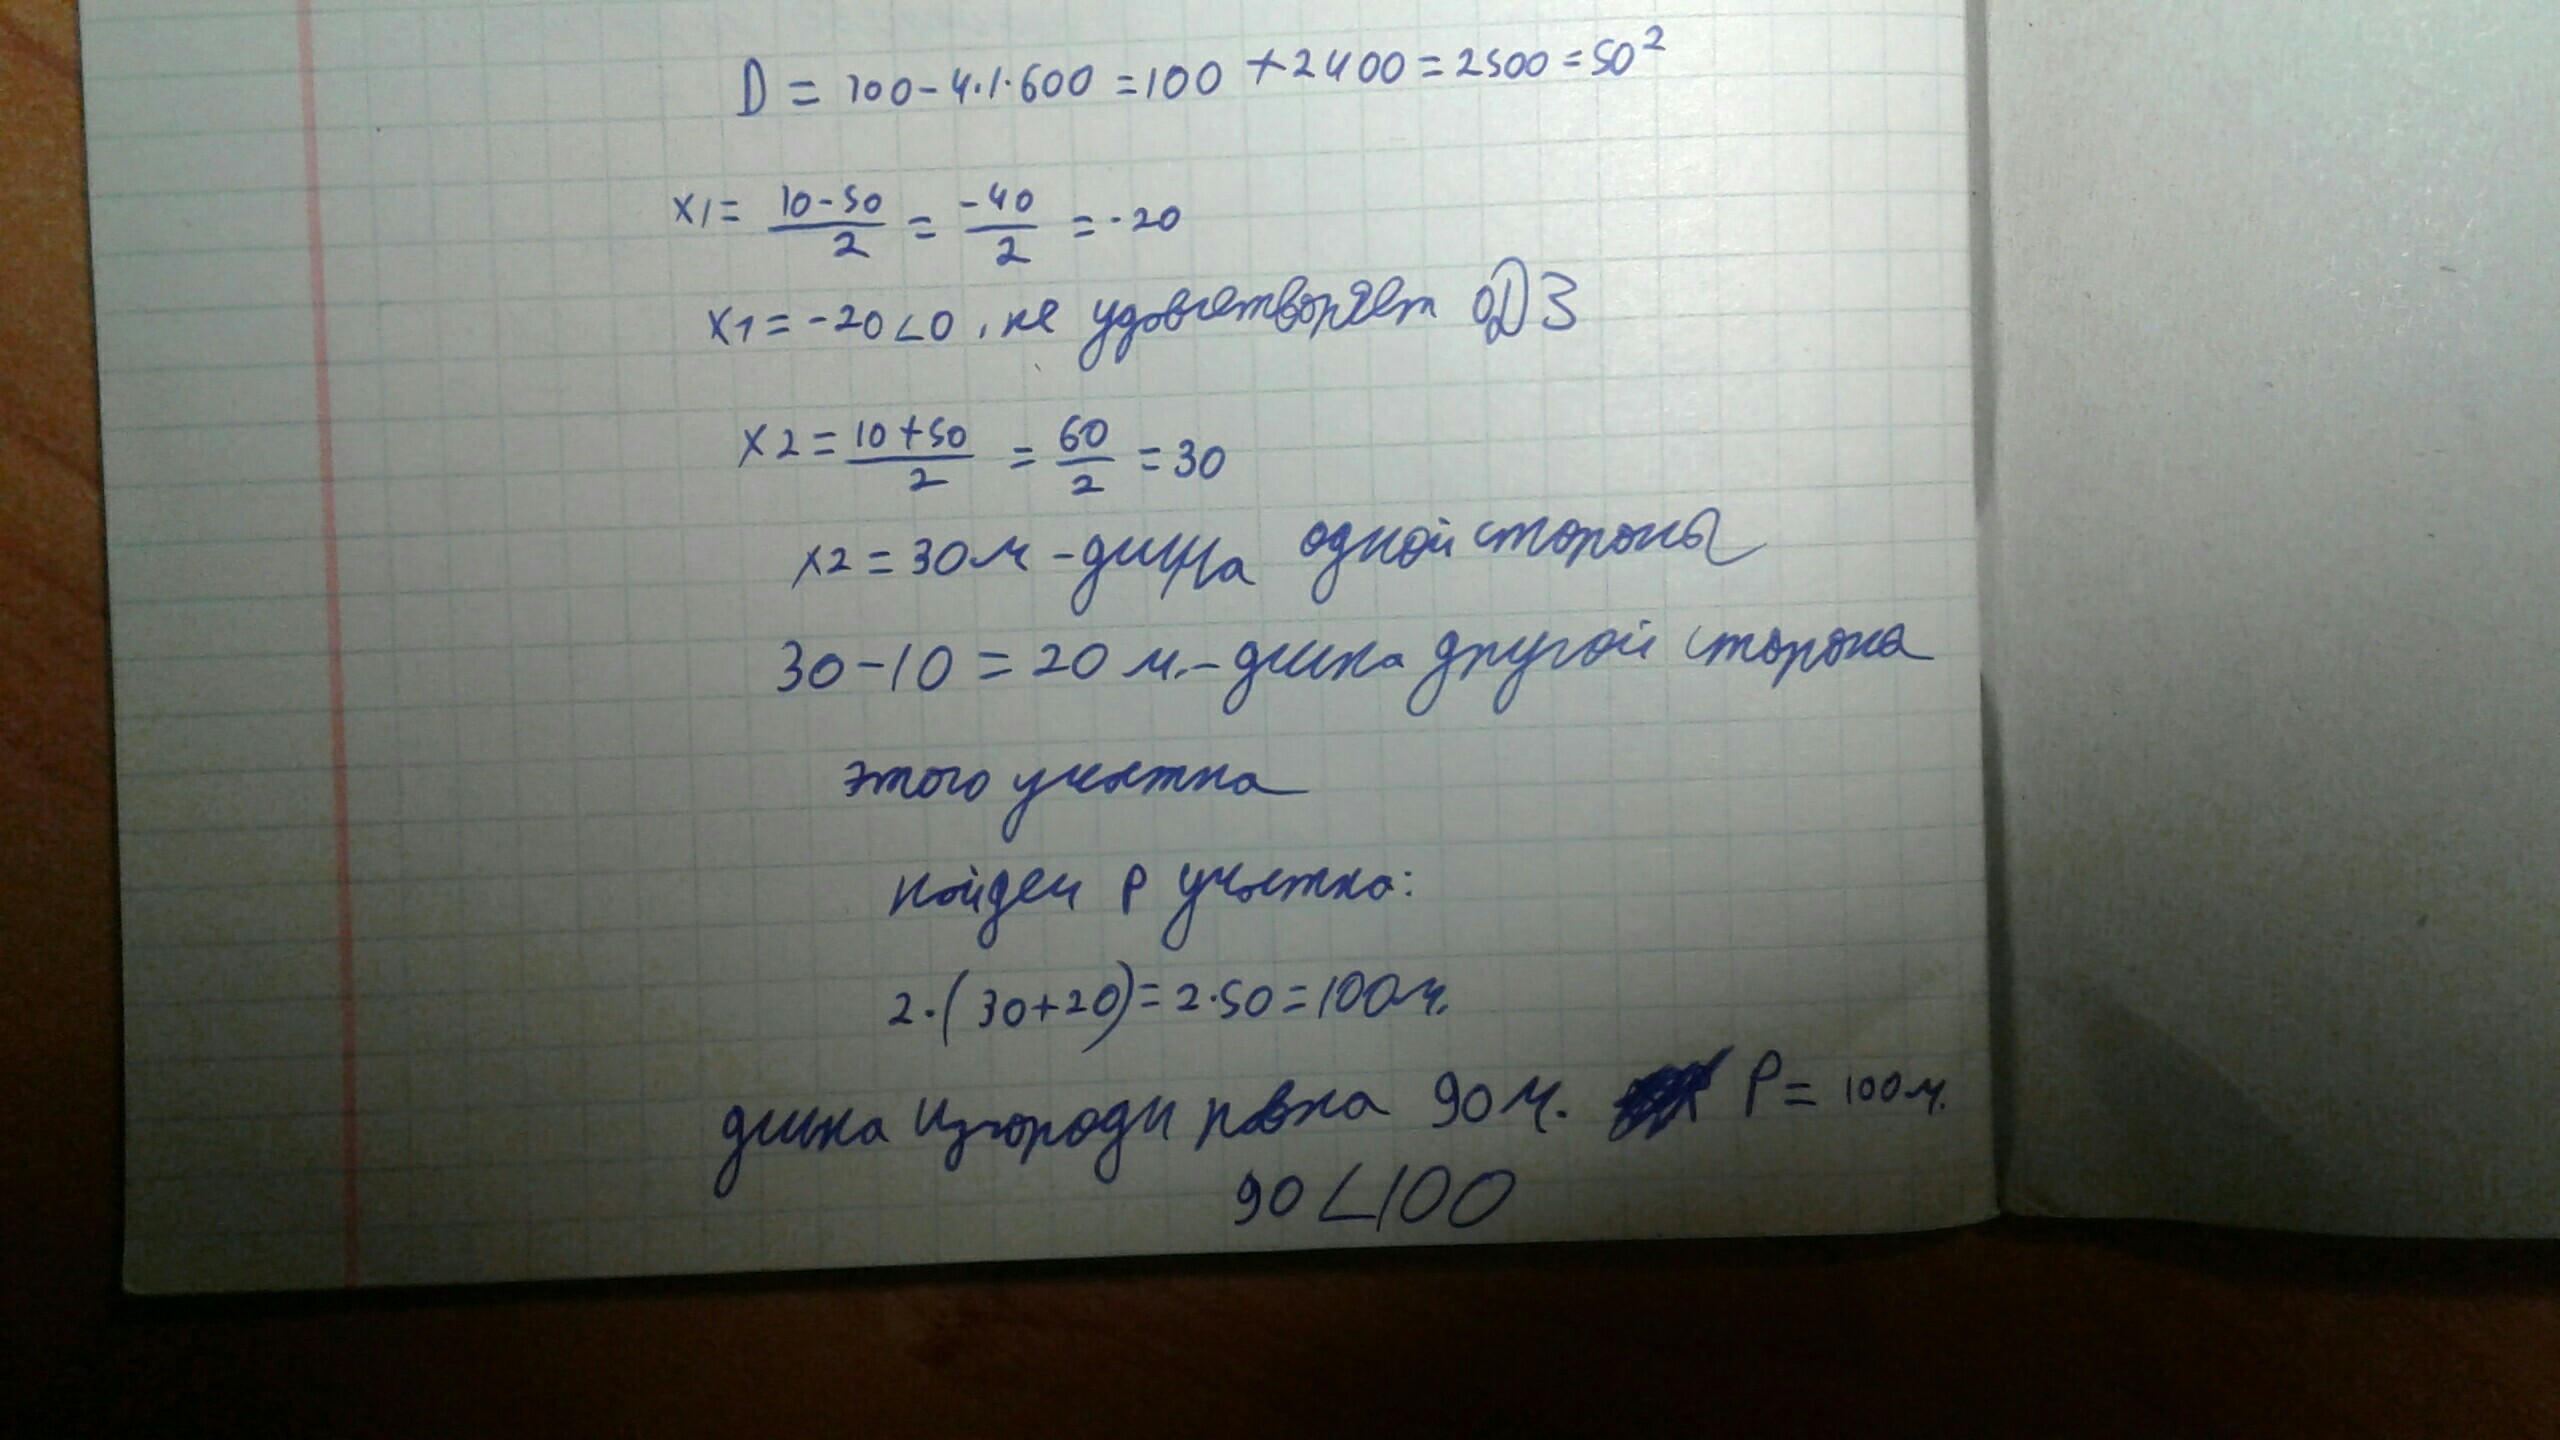 D = 100-4·1·600 = 100 + 2400 = 2500 = 50²
x1 = (10-50)/2 = -40/2 = -20
x1 = -20<0, не удовлетворяет ОДЗ
x2 = (10+50)/2 = 60/2 = 30
x2 = 30м - длина одной стороны
30-10 = 20 м. - длина другой сторона
этого участка
найдем P участка:
2·(30+20) = 2·50 = 100м.
длина изгороди равна 90м. P = 100м.
90<100